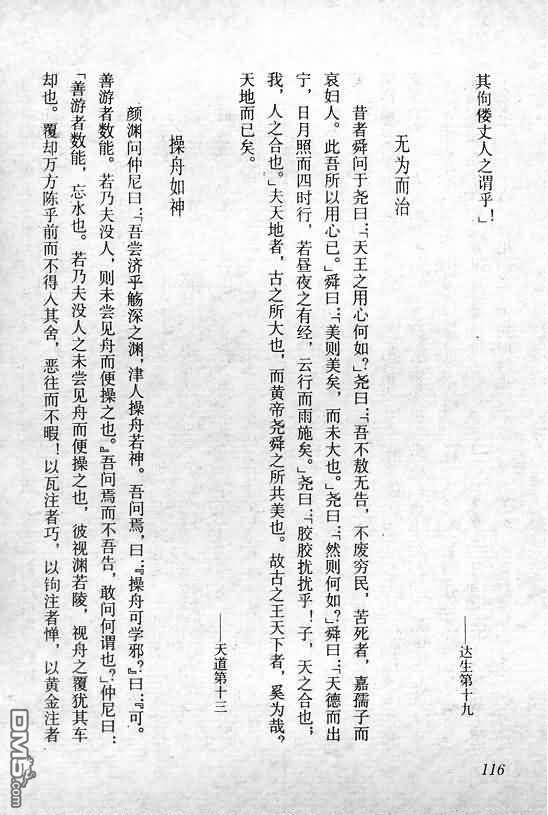 其佝偻丈人之谓乎！」
——达生第十九
无为而治
昔者舜问于尧曰：「天王之用心何如？」尧曰：「吾不敖无告，不废穷民，苦死者，嘉孺子而
哀妇人。此吾所以用心已。」舜曰：「美则美矣，而未大也。」尧曰：「然则何如？」舜曰：「天德而出
宁，日月照而四时行，若昼夜之有经，云行而雨施矣。」尧曰：「胶胶扰扰乎！子，天之合也；
我，人之合也。」夫天地者，古之所大也，而黄帝尧舜之所共美也。故古之王天下者，奚为哉？
天地而已矣。
——天道第十三
操舟如神
颜渊问仲尼曰：「吾尝济乎觞深之渊，津人操舟若神。吾问焉，曰：『操舟可学邪？』曰：『可。
善游者数能。若乃夫没人，则未尝见舟而便操之也。』吾问焉而不吾告，敢问何谓也？」仲尼曰：
「善游者数能，忘水也。若乃夫没人之未尝见舟而便操之也，彼视渊若陵，视舟之覆犹其车
却也。覆却万方陈乎前而不得入其舍，恶往而不暇！以瓦注者巧，以钩注者惮，以黄金注者
116
DM5.com